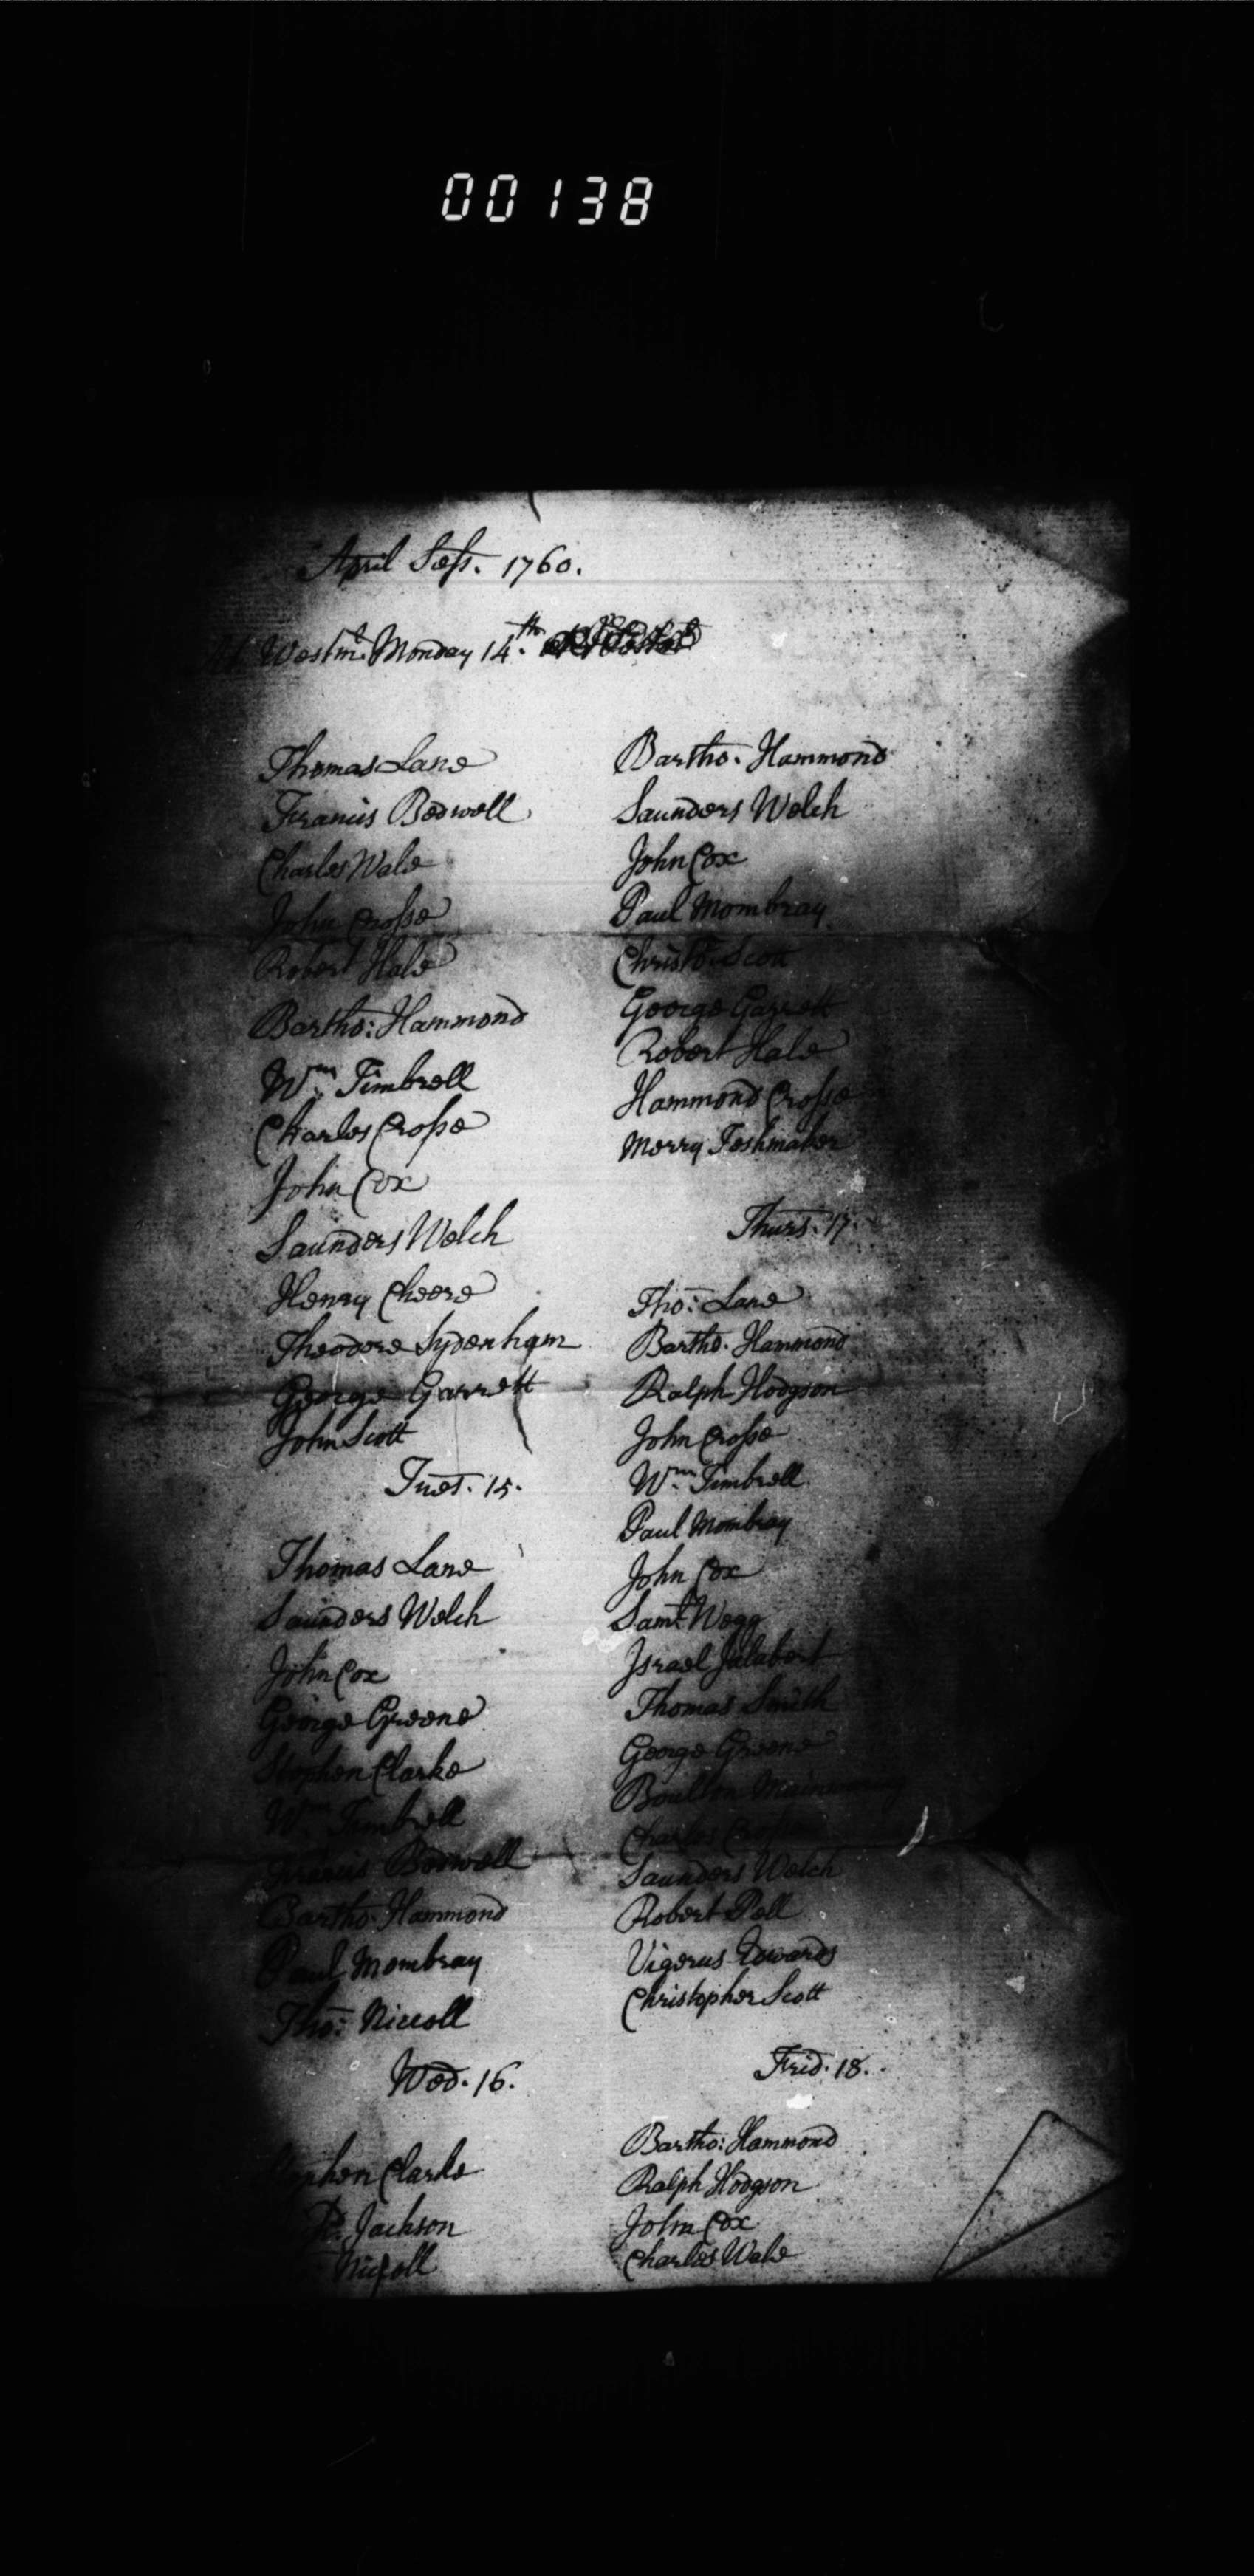 00138
April Sess. 1760.
At Westmr. Monday 14th.
Thomas Lane
Francis Bedwell
Charles Wale
John Crosse
Robert Hale
Bartho: Hammond
Wm. Timbrell
Charles Crosse
John Cox
Saunders Welch
Henry Cheere
Theodore Sydenham
George Garrett
John Scott
Tues. 15.
Thomas Lane
Saunders Welch
John Cox
George Greene
Stephen Clarke
Wm Timbrell
Francis Bedwell
Bartho. Hammond
Paul Mombray
Tho: Niccoll
Wed. 16.
Stephen Clarke
Jackson
Nicoll
Bartho. Hammond
Saunders Welch
John Cox
Paul Mombray
Christo. Scott
George Garrett
Robert Hale
Hammond Crosse
Merry Teshmaker
Thurs. 17.
Tho: Lane
Bartho. Hammond
Ralph Hodgson
John Crosse
Wm. Timbrell
Paul Mombray
John Cox
Saml. Wegg
Israel Jalabert
Thomas Smith
George Greene
Boulton Mainwaring
Charles Crosse
Saunders Welch
Robert Pell
Vigerus Edwards
Christopher Scott
Frid. 18.
Bartho: Hammond
Ralph Hodgson
John Cox
Charles Wale